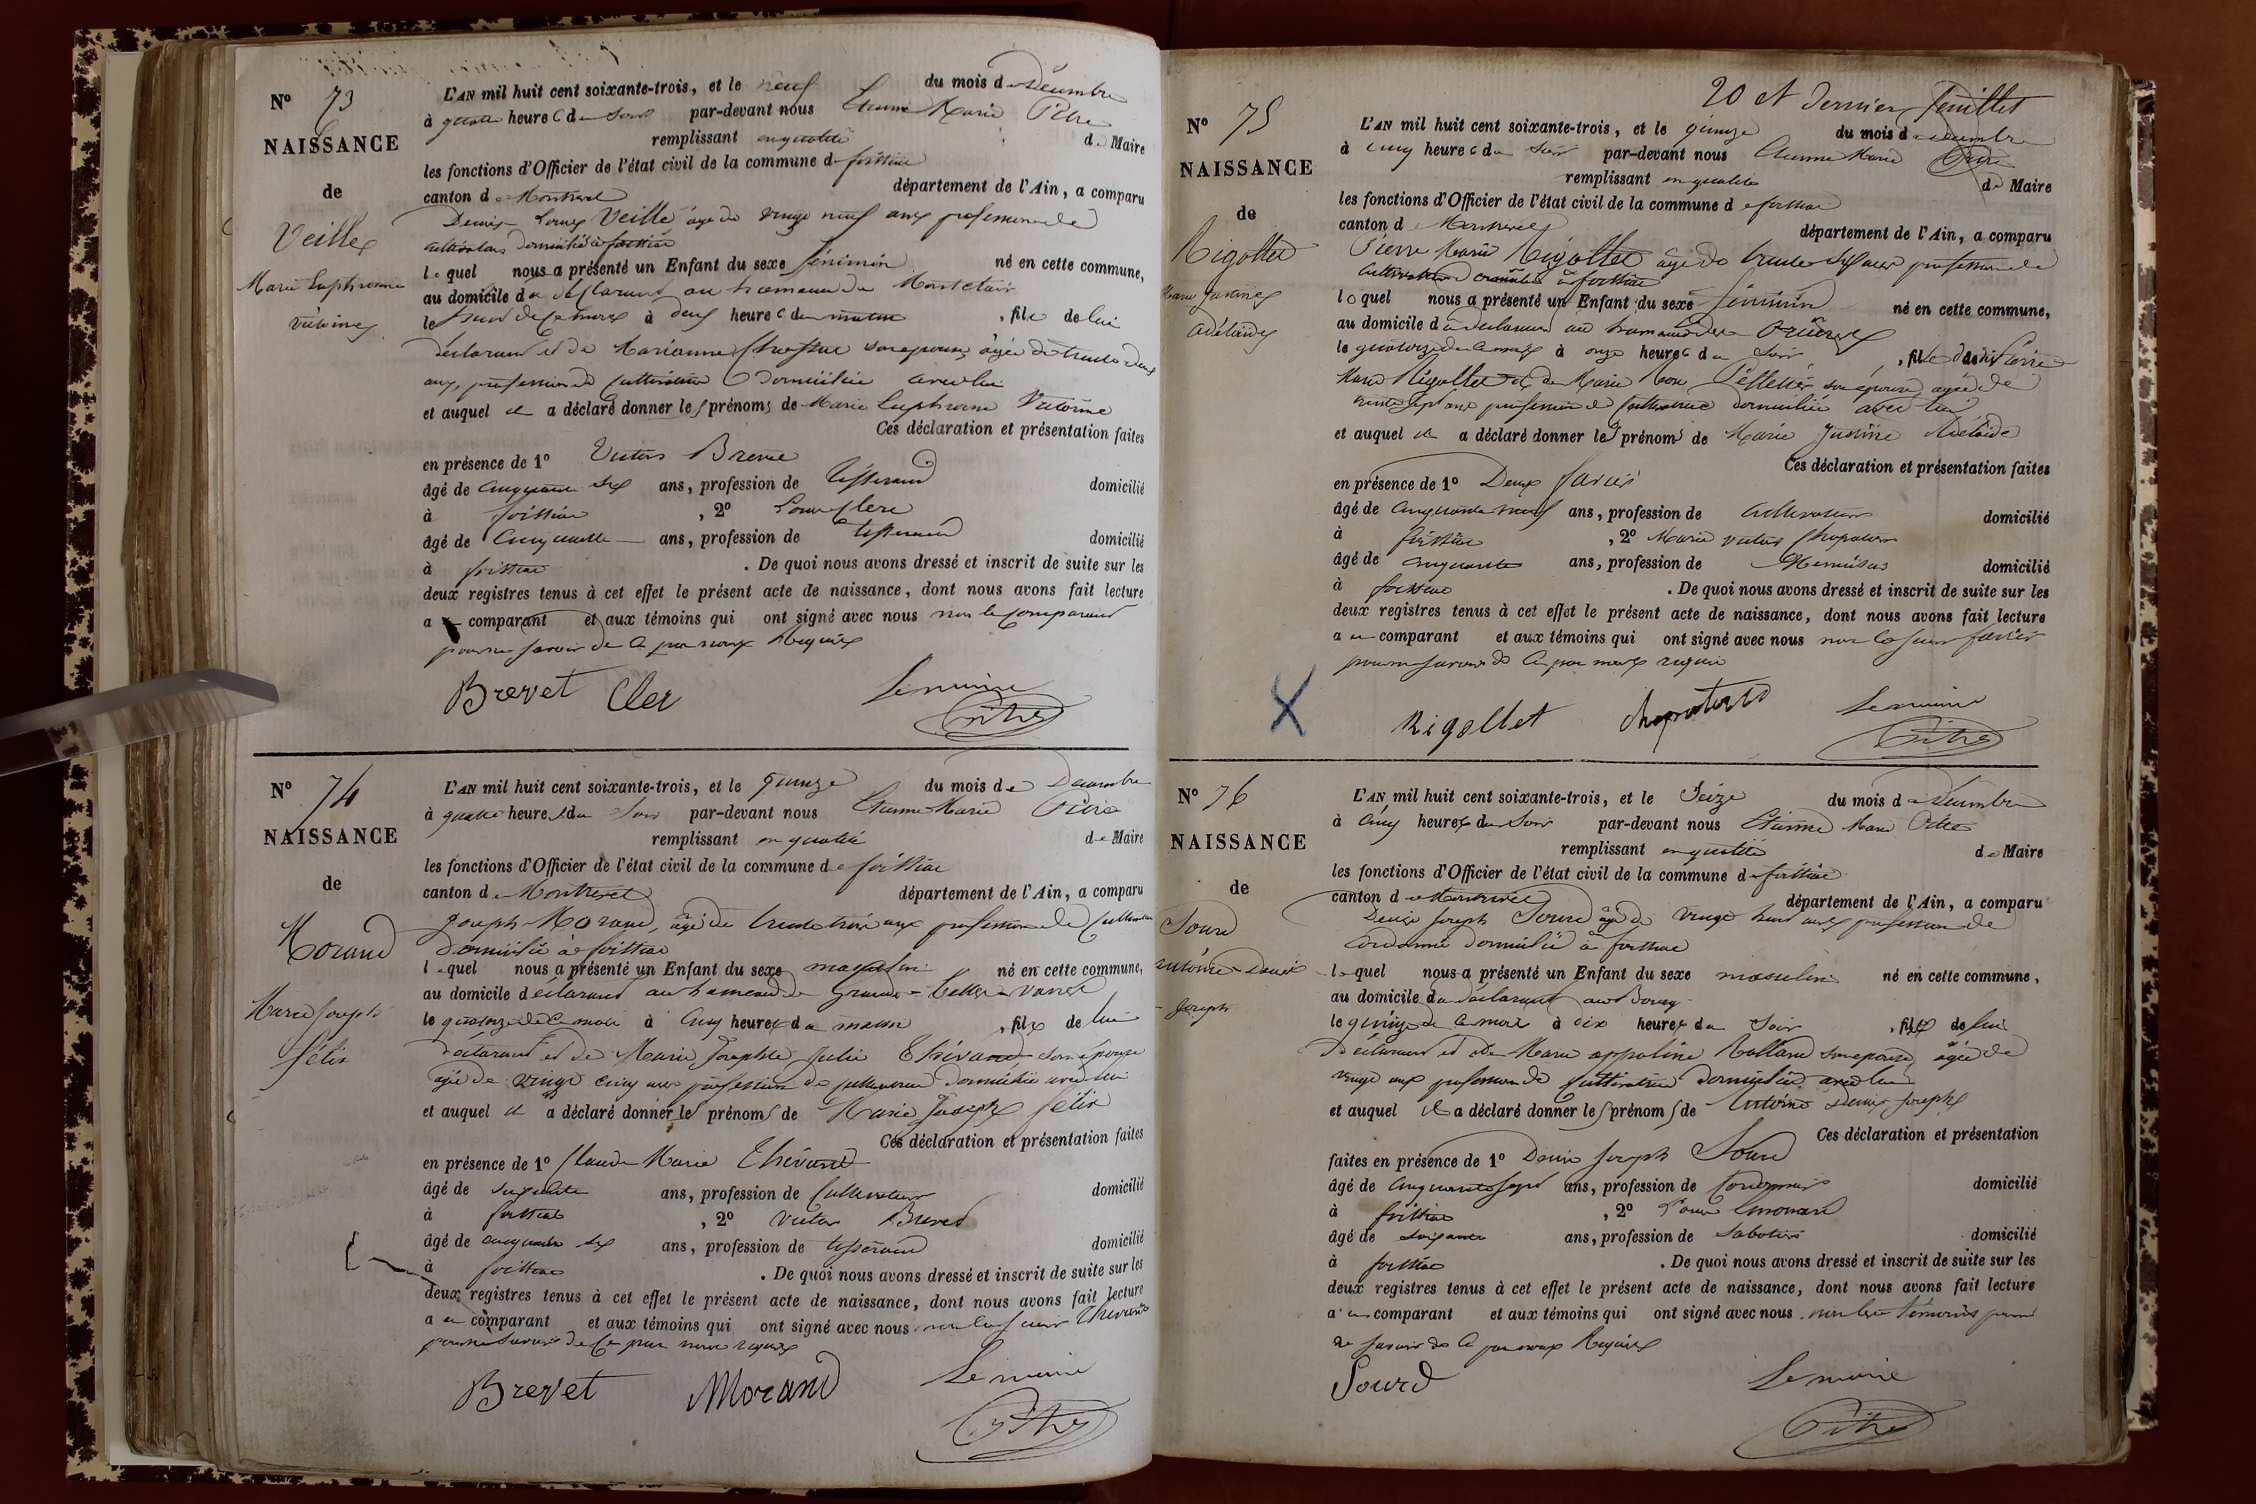 N° 73
NAISSANCE
de
Veille
Marie Euphrosine
Victorine
L'AN mil huit cent soixante-trois, et le neuf du mois de Décembre
à quatre heures du soir par-devant nous Etienne Marie Pitre
remplissant en qualité de Maire
les fonctions d'Officier de l'état civil de la commune de foissiat
canton de Montrevel département de l'Ain, a comparu
Denis Louis Veille âgé de vingt neuf ans profession de
cultivateur domicilié à foissiat
lequel nous a présenté un Enfant du sexe féminin né en cette commune,
au domicile du déclarant au hameau de
le neuf de ce mois à deux heures du matin, fille de lui
déclarant et de Marianne son épouse âgée de trente deux
ans, profession de cultivatrice domiciliée avec lui
et auquel il a déclaré donner les prénoms de Marie Euphrosine Victorine
Ces déclaration et présentation faites
en présence de 1° Victor Brevet
âgé de cinquante six ans, profession de tisserand domicilié
à foissiat, 2° Louis Clerc
âgé de Cinquante ans, profession de tisserand domicilié
à foissiat. De quoi nous avons dressé et inscrit de suite sur les
deux registres tenus à cet effet le présent acte de naissance, dont nous avons fait lecture
au comparant et aux témoins qui ont signé avec nous non le comparant
pour ne savoir de ce par nous Requis
Brevet Cler Le maire
Pitre
N° 74
NAISSANCE
de
Morand
Marie Joseph
félix
L'AN mil huit cent soixante-trois, et le quinze du mois de Décembre
à quatre heures du soir par-devant nous Etienne Marie Pitre
remplissant en qualité de Maire
les fonctions d'Officier de l'état civil de la commune de foissiat
canton de Montrevel département de l'Ain, a comparu
Joseph Morand, âgé de trente trois ans profession de Cultivateur
domicilié à foissiat
lequel nous a présenté un Enfant du sexe masculin né en cette commune,
au domicile déclarant au hameau de Grande
le quatorze de ce mois à cinq heures du matin, fils de lui
déclarant et de Marie Josephte Julie Thévand son épouse
âgée de vingt cinq ans profession de cultivatrice domiciliée avec lui
et auquel il a déclaré donner les prénoms de Marie Joseph félix
Ces déclaration et présentation faites
en présence de 1° Claude Marie Thévand
âgé de ans, profession de Cultivateur domicilié
à foissiat, 2° Victor Brevet
âgé de cinquante six ans, profession de tisserand domicilié
à foissiat. De quoi nous avons dressé et inscrit de suite sur les
deux registres tenus à cet effet le présent acte de naissance, dont nous avons fait lecture
au comparant et aux témoins qui ont signé avec nous non le sieur Thévand
pour ne savoir de ce par nous requis
Brevet Morand Le maire
Pitre
20 et dernier feuillet
N° 75
NAISSANCE
de
Rigollet
Marie Justine
Adélaïde
L'AN mil huit cent soixante-trois, et le quinze du mois de décembre
à cinq heures du soir par-devant nous Etienne Marie Pitre
remplissant en qualité de Maire
les fonctions d'Officier de l'état civil de la commune de foissiat
canton de Montrevel département de l'Ain, a comparu
Pierre Marie Rigollet âgé de trente six ans profession de
cultivateur domicilié à foissiat
lequel nous a présenté un Enfant du sexe féminin né en cette commune,
au domicile du déclarant au hameau des
le quatorze de ce mois à onze heures du soir, fille dudit Pierre
Marie Rigollet et de Marie Pelletier son épouse âgée de
trente sept ans profession de cultivatrice domiciliée avec lui
et auquel il a déclaré donner les prénoms de Marie Justine Adélaïde
Ces déclaration et présentation faites
en présence de 1° Denis favier
âgé de cinquante neuf ans, profession de cultivateur domicilié
à foissiat, 2° Marie Victor Chapotard
âgé de cinquante ans, profession de Menuisier domicilié
à foissiat. De quoi nous avons dressé et inscrit de suite sur les
deux registres tenus à cet effet le présent acte de naissance, dont nous avons fait lecture
au comparant et aux témoins qui ont signé avec nous non le sieur favier
pour ne savoir de ce par nous requis
Rigollet Chapotard Le maire
Pitre
N° 76
NAISSANCE
de
Sourd
Antoine Denis
Joseph
L'AN mil huit cent soixante-trois, et le seize du mois de Décembre
à cinq heures du soir par-devant nous Etienne Marie Pitre
remplissant en qualité de Maire
les fonctions d'Officier de l'état civil de la commune de foissiat
canton de Montrevel département de l'Ain, a comparu
Denis Joseph Sourd âgé de vingt huit ans profession de
Cordonnier domicilié à foissiat
lequel nous a présenté un Enfant du sexe masculin né en cette commune,
au domicile du déclarant au Bourg
le quinze de ce mois à dix heures du soir, fils de lui
déclarant et de Marie appoline Rolland son épouse âgée de
vingt ans profession de cultivatrice domiciliée avec lui
et auquel il a déclaré donner les prénoms de Antoine Denis Joseph
Ces déclaration et présentation
faites en présence de 1° Denis Joseph Sourd
âgé de cinquante sept ans, profession de Cordonnier domicilié
à foissiat, 2° Louis
âgé de soixante ans, profession de sabotier domicilié
à foissiat. De quoi nous avons dressé et inscrit de suite sur les
deux registres tenus à cet effet le présent acte de naissance, dont nous avons fait lecture
au comparant et aux témoins qui ont signé avec nous non les témoins pour
ne savoir de ce par nous Requis
Sourd Le maire
Pitre